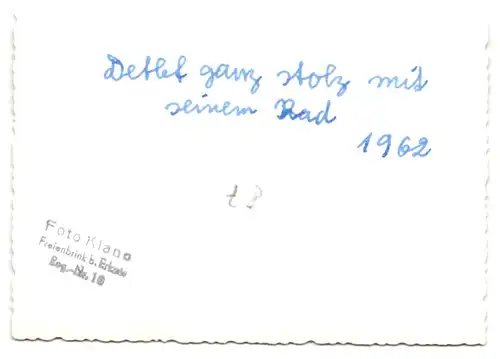 Detlef ganz stolz mit
seinem Rad
1962
Foto Klano
Freienbrink b. Erkner
Reg.-Nr. 18